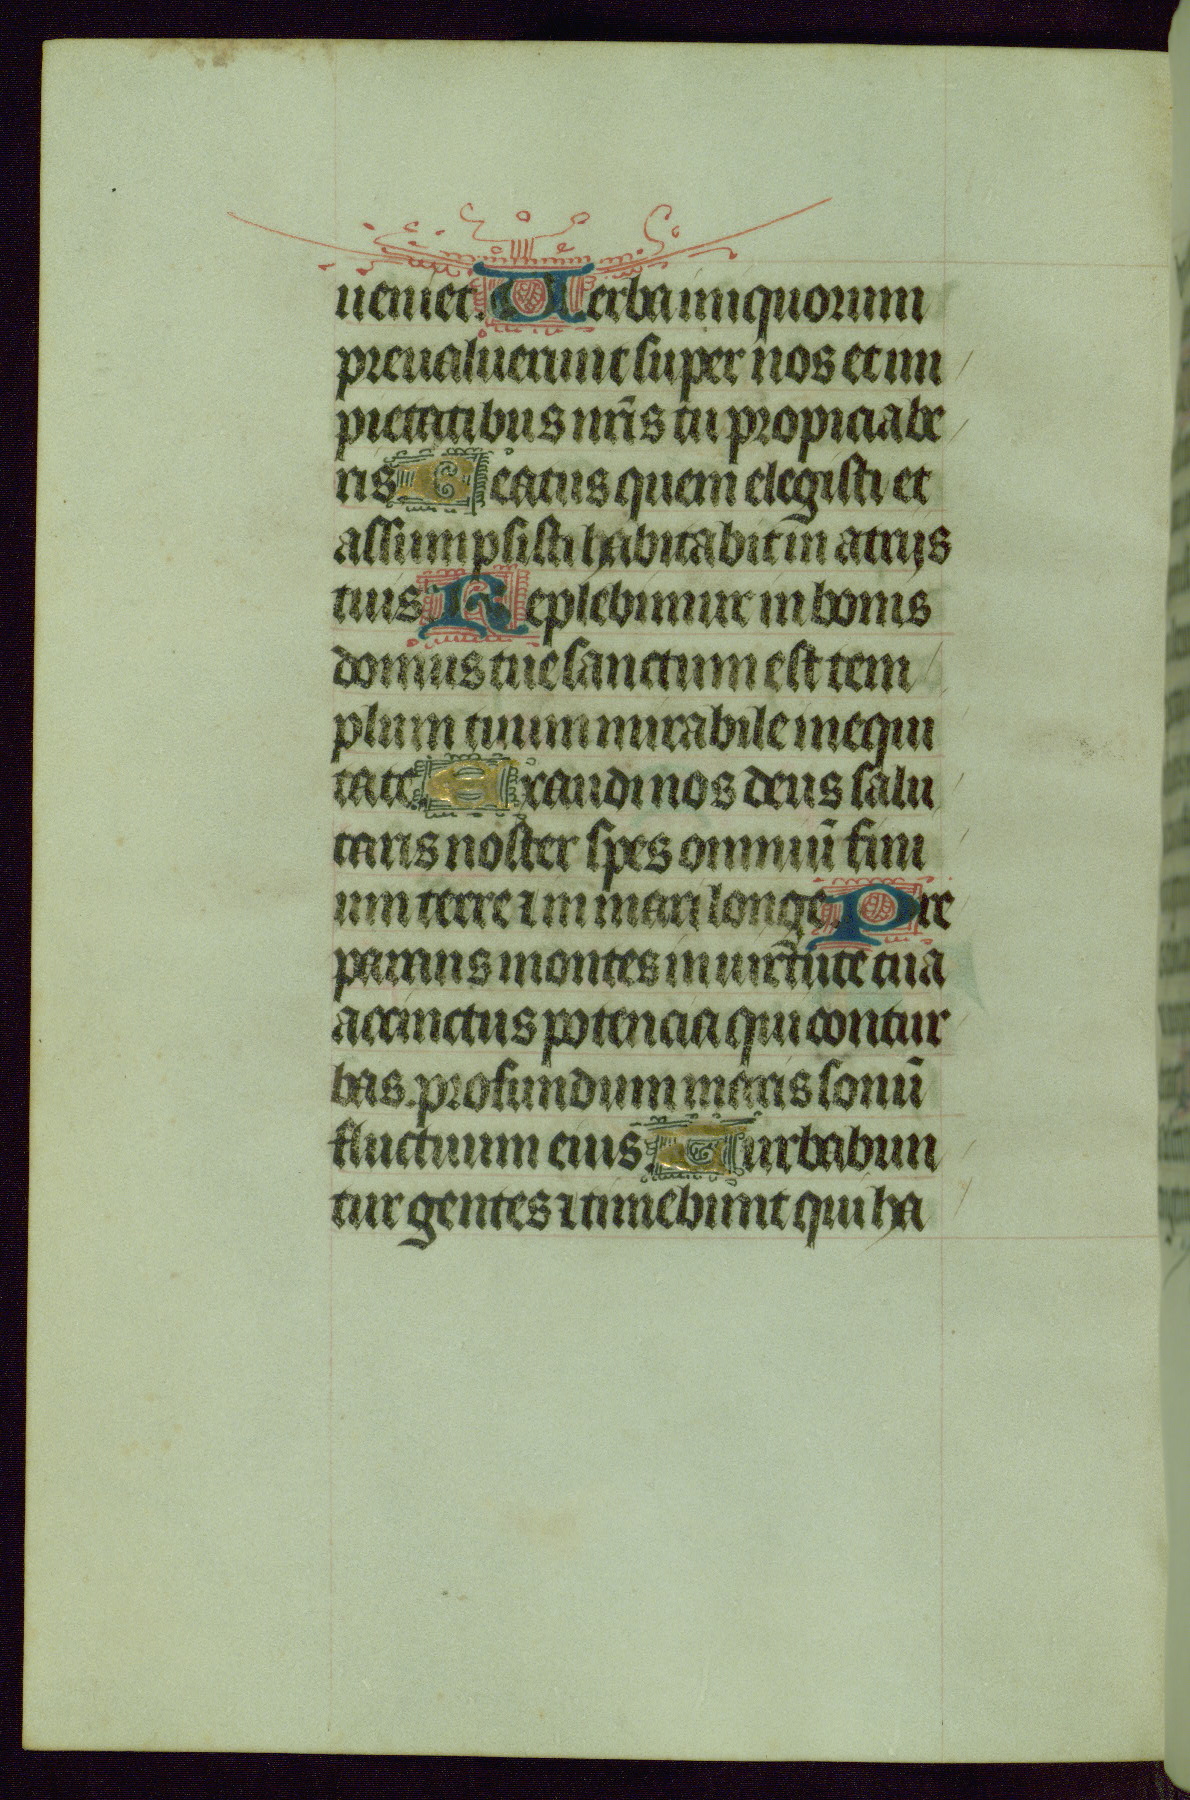 ueniet. Uerba iniquorum
preualuerunt super nos et im
pietatibus nr̄is tu propiciabe
ris Beatus quem elegisti et
assumpsisti habitabit in atrijs
tuis. Replebimur in bonis
domus tue sanctum est tem
plum tuum mirabile in equi
tate. Exaudi nos deus salu
taris noster spes omniū fini
um terre ⁊ in mari longe. Pre
parans montes in uirtute tua
accinctus potencia qui contur
bas profundum maris sonū
fluctuum eius. Turbabun
tur gentes ⁊ timebunt qui ha